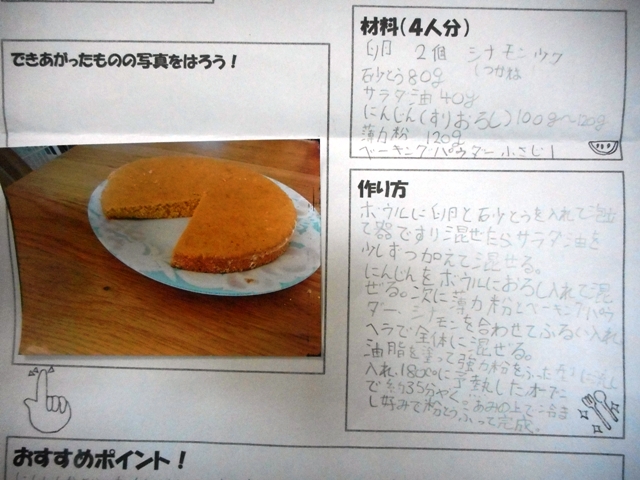 できあがったものの写真をはろう!
材料(4人分)
卵 2個 シナモン少々
砂とう80g
サラダ油 40g
にんじん(すりおろし)100g〜120g
薄力粉 120g
ベーキングパウダー 小さじ1
作り方
ボウルに卵と砂とうを入れて泡立
て器ですり混ぜたらサラダ油を
少しずつ加えて混ぜる。
にんじんをボウルにおろし入れて混
ぜる。次に薄力粉とベーキングパウ
ダー、シナモンを合わせてふるい入れ
ヘラで全体に混ぜる。
油脂を塗って強力粉をふった型に流し
入れ、180℃に予熱したオーブン
で約35分やく。あみの上で冷ま
し好みで粉とうふって完成。
おすすめポイント!